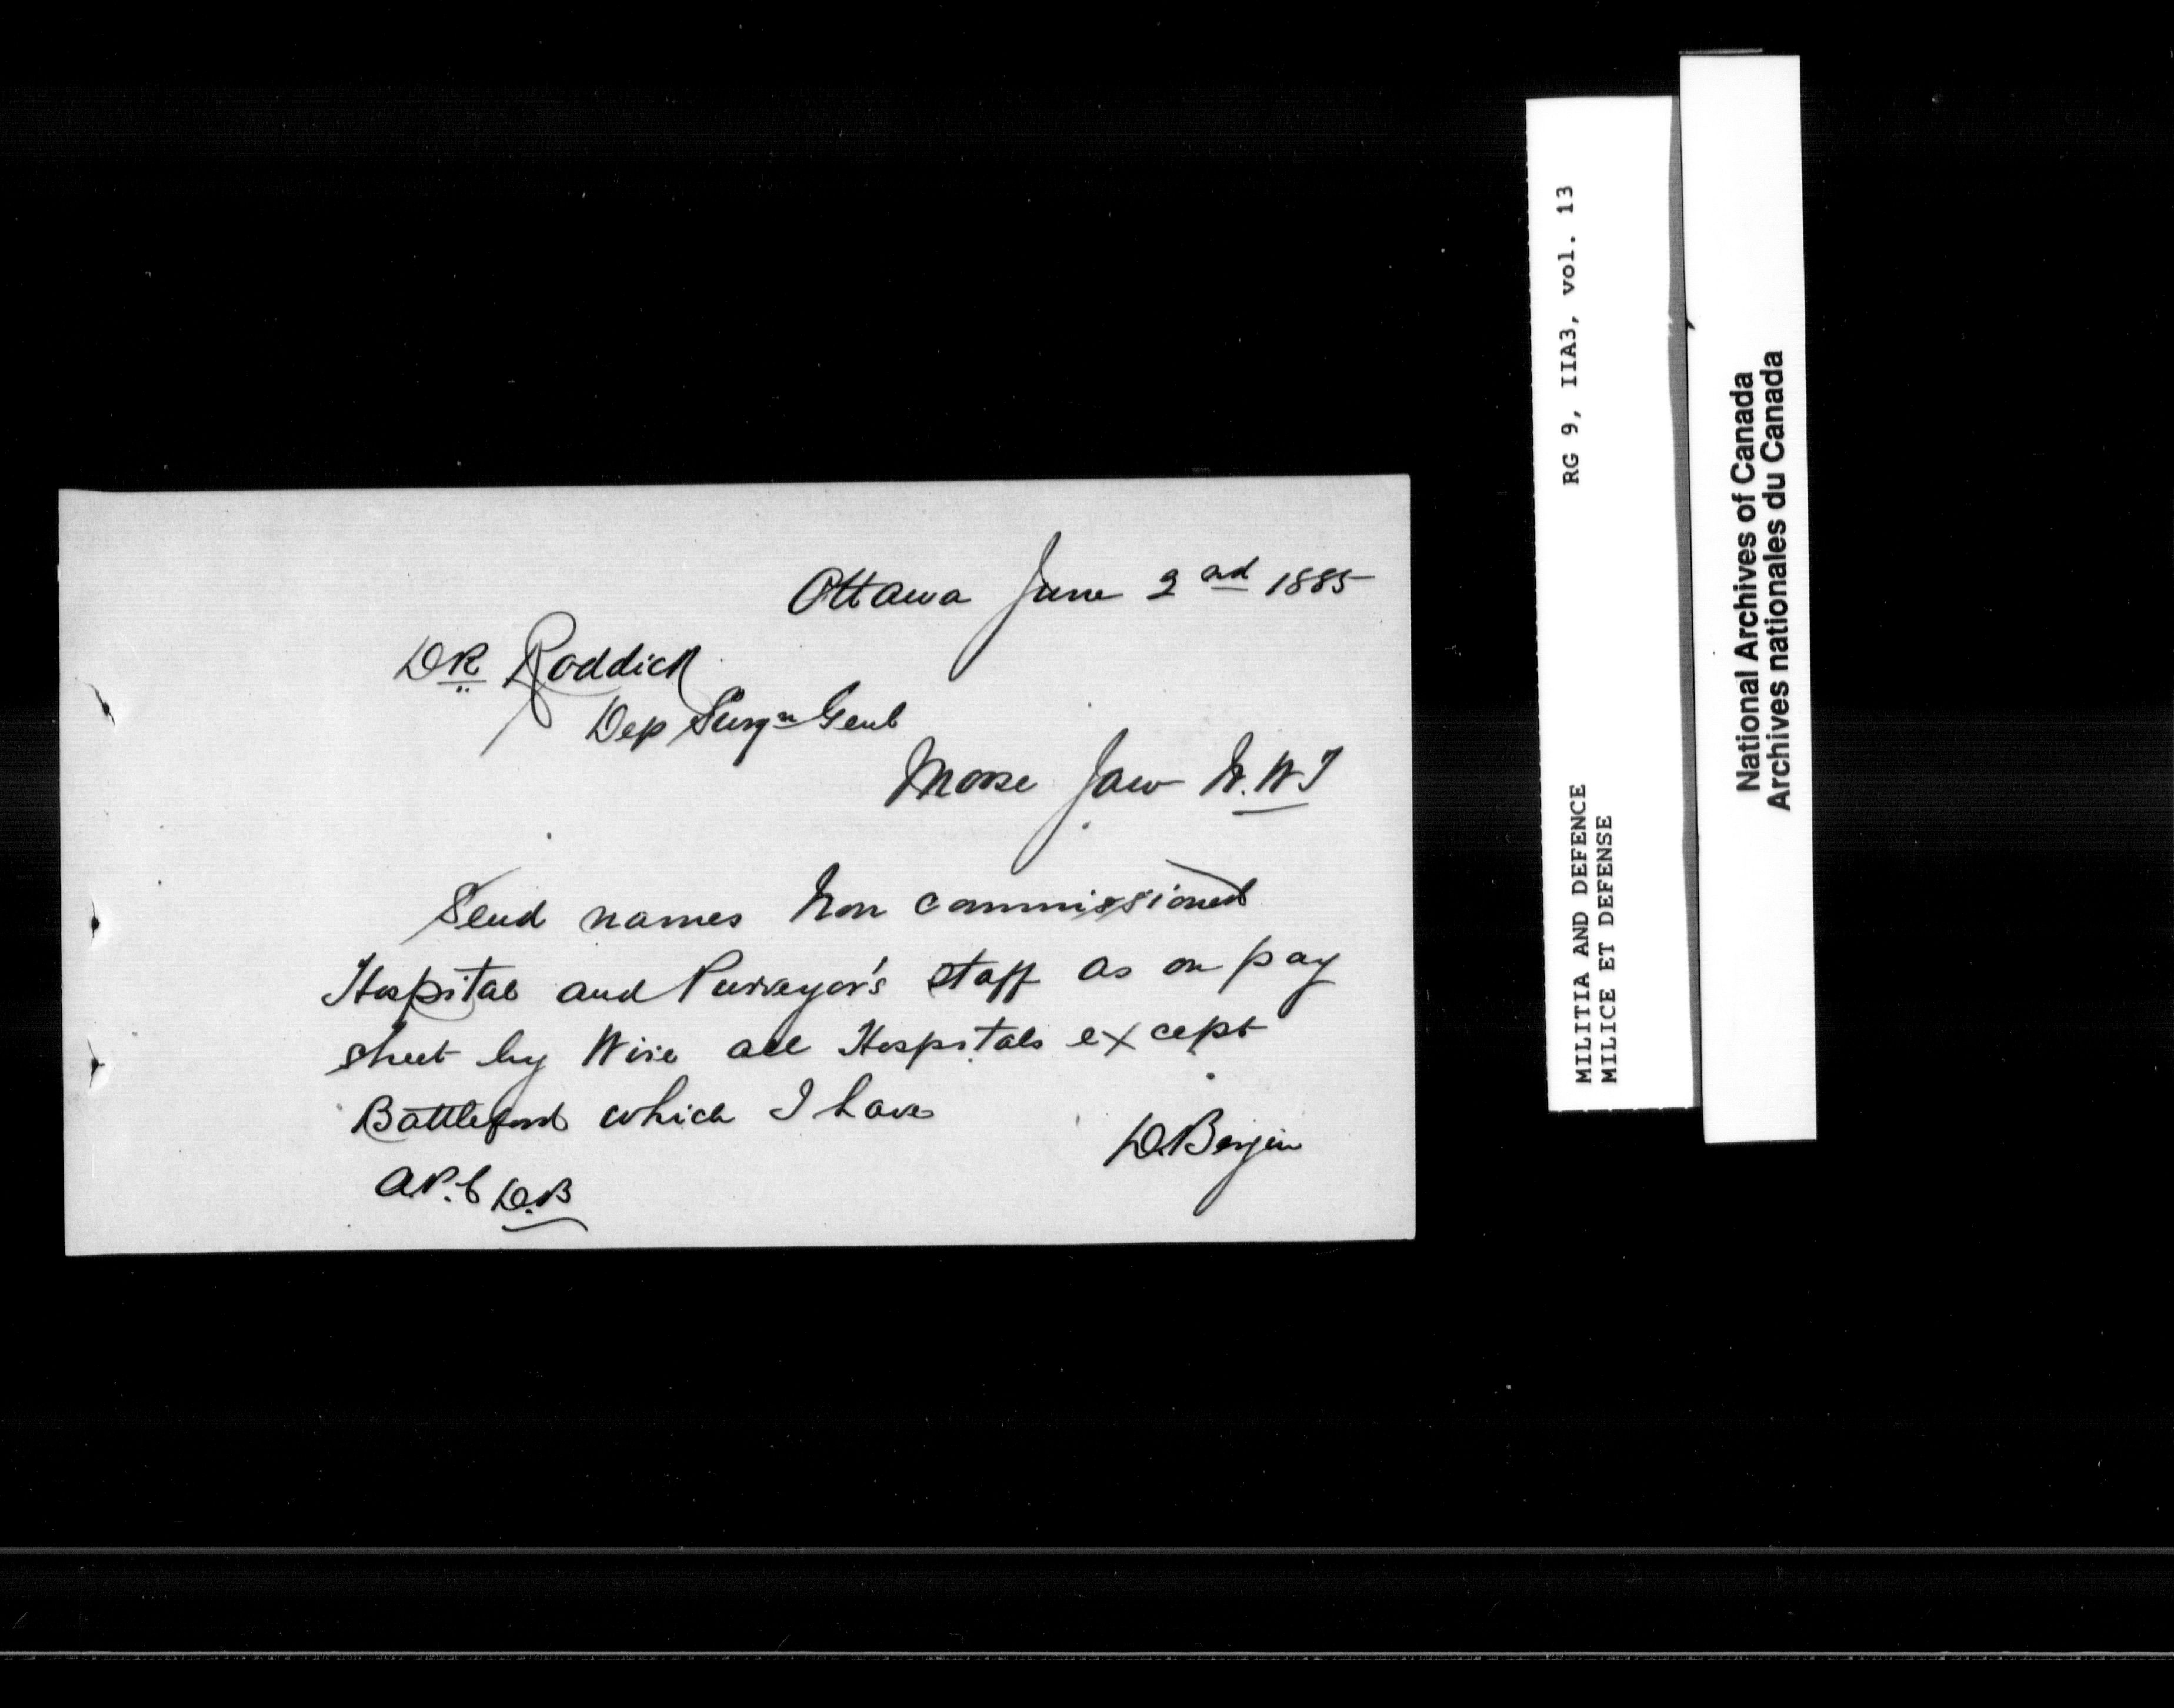 Ottawa June 2nd 1885
DR Roddick
Dep Surgn Genl
Moose Jaw N.W.T
Send names Non commissioned
Hospital and Purveyor's staff as on pay
sheet by Wire all Hospitals except
Battleford which I have
D.Bergin
A.P.C D.B
MILITIA AND DEFENCE RG 9, IIA3, vol. 13
MILICE ET DEFENSE
National Archives of Canada
Archives nationales du Canada